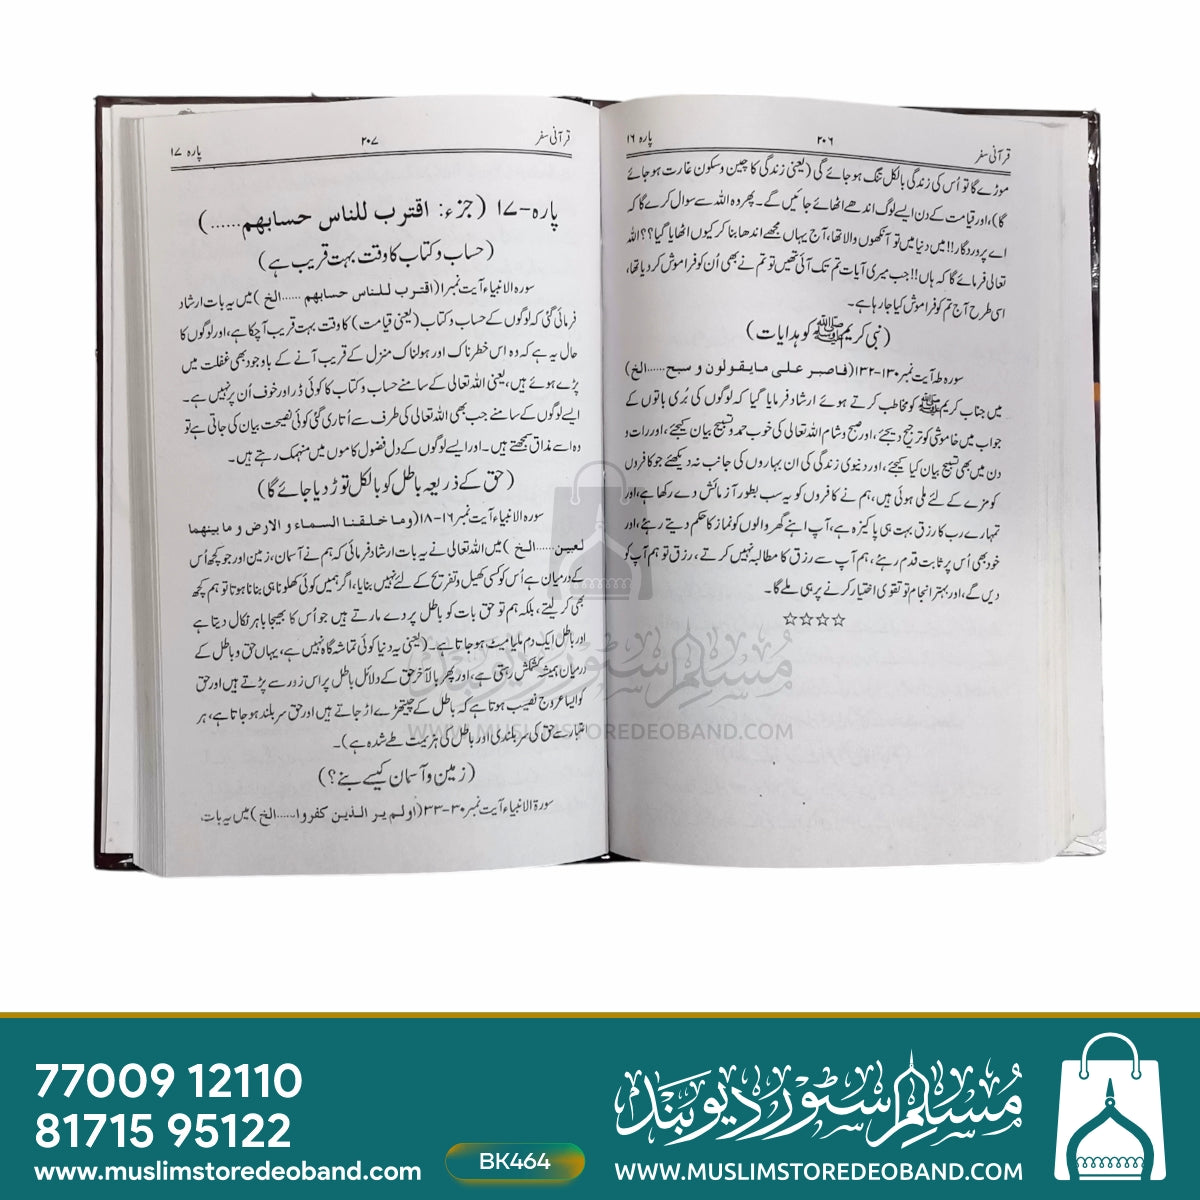 قرآنی سفر ۲۰۶ پارہ ۱۶
موڑے گا تو اُس کی زندگی بالکل تنگ ہو جائے گی (یعنی زندگی کا چین وسکون غارت ہو جائے
گا)، اور قیامت کے دن ایسے لوگ اندھے اٹھائے جائیں گے۔ پھر وہ اللہ سے سوال کرے گا کہ
اے پروردگار!! میں دنیا میں تو آنکھوں والا تھا، آج یہاں مجھے اندھا بنا کر کیوں اٹھایا گیا؟؟ اللہ
تعالی فرمائے گا کہ ہاں!! جب میری آیات تم تک آئی تھیں تو تم نے بھی اُن کو فراموش کر دیا تھا،
اسی طرح آج تم کو فراموش کیا جا رہا ہے۔
(نبی کریم ﷺ کو ہدایات)
سورہ طہ آیت نمبر ۱۳۰-۱۳۲ (فاصبر علی مایقولون و سبح......الخ)
میں جناب کریم ﷺ کو مخاطب کرتے ہوئے ارشاد فرمایا گیا کہ لوگوں کی بُری باتوں کے
جواب میں خاموشی کو ترجیح دیجئے، اور صبح و شام اللہ تعالی کی خوب حمد و تسبیح بیان کیجئے، اور رات و
دن میں بھی تسبیح بیان کیا کیجئے، اور دنیوی زندگی کی ان بہاروں کی جانب نہ دیکھئے جو کافروں
کو مزے کے لئے ملی ہوئی ہیں، ہم نے کافروں کو یہ سب بطور آزمائش دے رکھا ہے، اور
تمہارے رب کا رزق بہت ہی پاکیزہ ہے، آپ اپنے گھر والوں کو نماز کا حکم دیتے رہئے، اور
خود بھی اُس پر ثابت قدم رہئے، ہم آپ سے رزق کا مطالبہ نہیں کرتے، رزق تو ہم آپ کو
دیں گے، اور بہتر انجام تو تقوی اختیار کرنے پر ہی ملے گا۔
☆☆☆☆
قرآنی سفر ۲۰۷ پارہ ۱۷
پارہ-۱۷ (جزء: اقترب للناس حسابهم......)
(حساب و کتاب کا وقت بہت قریب ہے)
سورہ الانبیاء آیت نمبر ۱ (اقترب للناس حسابهم......الخ) میں یہ بات ارشاد
فرمائی گئی کہ لوگوں کے حساب و کتاب (یعنی قیامت) کا وقت بہت قریب آچکا ہے، اور لوگوں کا
حال یہ ہے کہ وہ اس خطرناک اور ہولناک منزل کے قریب آنے کے باوجود بھی غفلت میں
پڑے ہوئے ہیں، یعنی اللہ تعالی کے سامنے حساب و کتاب کا کوئی ڈر اور خوف اُن پر نہیں ہے۔
ایسے لوگوں کے سامنے جب بھی اللہ تعالی کی طرف سے اُتاری گئی کوئی نصیحت بیان کی جاتی ہے تو
وہ اسے مذاق سمجھتے ہیں۔ اور ایسے لوگوں کے دل فضول کاموں میں منہمک رہتے ہیں۔
(حق کے ذریعہ باطل کو بالکل توڑ دیا جائے گا)
سورہ الانبیاء آیت نمبر ۱۶-۱۸ (وما خلقنا السماء و الارض و ما بینهما
لعبین......الخ) میں اللہ تعالی نے یہ بات ارشاد فرمائی کہ ہم نے آسمان، زمین اور جو کچھ اُس
کے درمیان ہے اُس کو کسی کھیل و تفریح کے لئے نہیں بنایا، اگر ہمیں کوئی کھلونا ہی بنانا ہوتا تو ہم کچھ
بھی کر لیتے، بلکہ ہم تو حق بات کو باطل پر دے مارتے ہیں جو اُس کا بھیجا باہر نکال دیتا ہے
اور باطل ایک دم ملیا میٹ ہو جاتا ہے۔ (یعنی یہ دنیا کوئی تماشہ گاہ نہیں ہے، یہاں حق و باطل کے
درمیان ہمیشہ کشمکش رہتی ہے، اور پھر بالآخر حق کے دلائل باطل پر اس زور سے پڑتے ہیں اور حق
کو ایسا عروج نصیب ہوتا ہے کہ باطل کے چیتھڑے اڑ جاتے ہیں اور حق سر بلند ہو جاتا ہے، ہر
اعتبار سے حق کی سربلندی اور باطل کی ہزیمت طے شدہ ہے)۔
(زمین و آسمان کیسے بنے؟)
سورۃ الانبیاء آیت نمبر ۳۰-۳۳ (اولم یر الذین کفروا......الخ) میں یہ بات
مسلم سٹور دیوبند
WWW.MUSLIMSTOREDEOBAND.COM
77009 12110
81715 95122
www.muslimstoredeoband.com
BK464
مسلم سٹور دیوبند
WWW.MUSLIMSTOREDEOBAND.COM